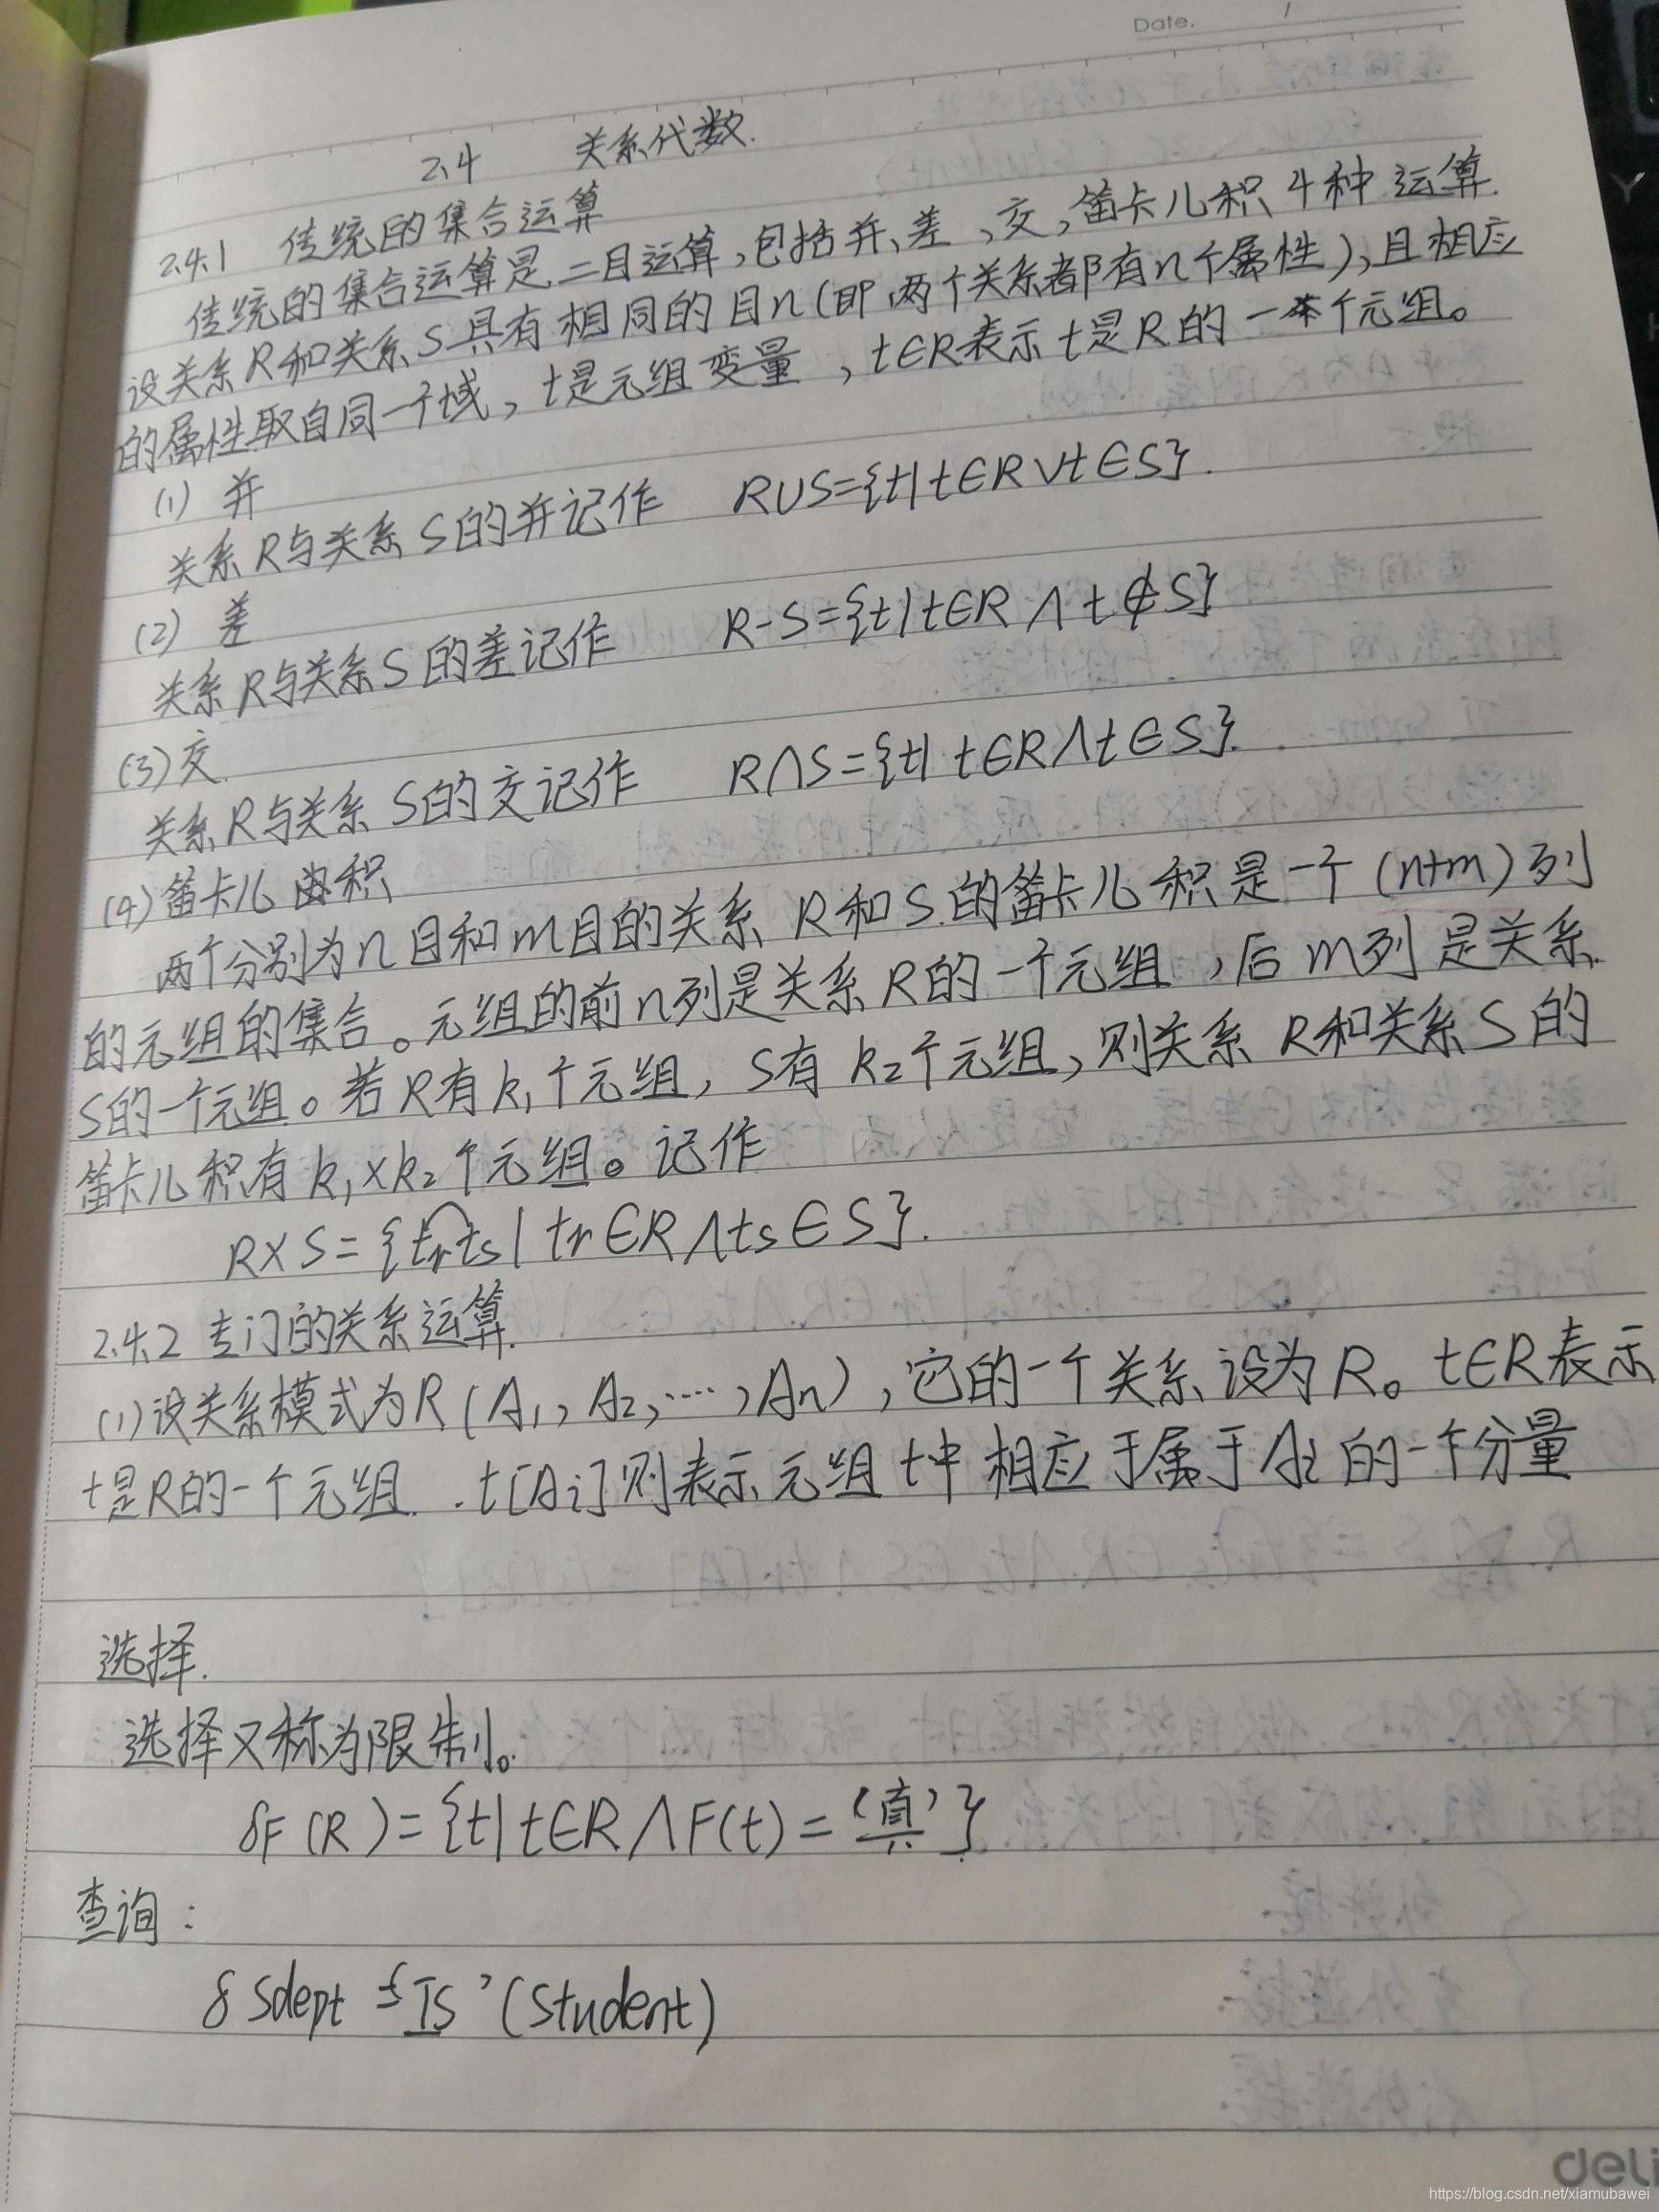 Date. /
2.4 关系代数.
2.4.1 传统的集合运算
传统的集合运算是二目运算,包括并、差、交,笛卡儿积4种运算.
设关系R和关系S具有相同的目n(即两个关系都有n个属性),且相应
的属性取自同一个域,t是元组变量,t∈R表示t是R的一个元组。
(1) 并
关系R与关系S的并记作 R∪S={t|t∈R∨t∈S}.
(2) 差
关系R与关系S的差记作 R-S={t|t∈R∧t∉S}
(3) 交.
关系R与关系S的交记作 R∩S={t|t∈R∧t∈S}.
(4) 笛卡儿积
两个分别为n目和m目的关系R和S的笛卡儿积是一个(n+m)列
的元组的集合。元组的前n列是关系R的一个元组,后m列是关系
S的一个元组。若R有k₁个元组,S有k₂个元组,则关系R和关系S的
笛卡儿积有k₁×k₂个元组。记作
R×S={tr⌒ts|tr∈R∧ts∈S}.
2.4.2 专门的关系运算.
(1)设关系模式为R(A₁,A₂,……,An),它的一个关系设为R。t∈R表示
t是R的一个元组.t[Ai]则表示元组t中相应于属于Ai的一个分量
选择.
选择又称为限制。
δF(R)={t|t∈R∧F(t)=‘真’}
查询:
δ Sdept=‘IS’(Student)
deli
https://blog.csdn.net/xiamubawei